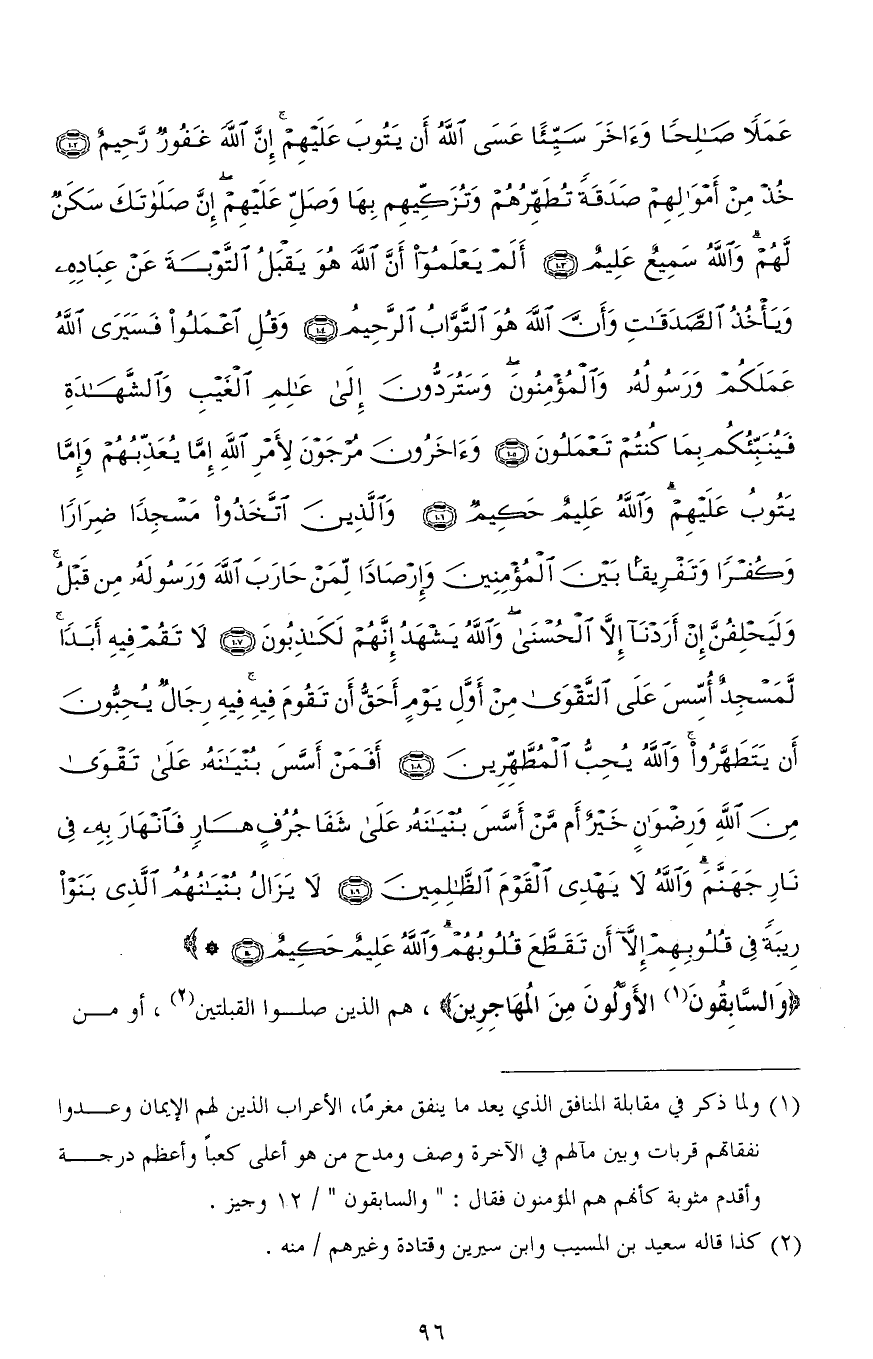 عَمَلًا صَـٰلِحًا وَءَاخَرَ سَيِّئًا عَسَى ٱللَّهُ أَن يَتُوبَ عَلَيْهِمْ ۚ إِنَّ ٱللَّهَ غَفُورٌ رَّحِيمٌ ﴿١٠٢﴾
خُذْ مِنْ أَمْوَٰلِهِمْ صَدَقَةً تُطَهِّرُهُمْ وَتُزَكِّيهِم بِهَا وَصَلِّ عَلَيْهِمْ ۖ إِنَّ صَلَوٰتَكَ سَكَنٌ
لَّهُمْ ۗ وَٱللَّهُ سَمِيعٌ عَلِيمٌ ﴿١٠٣﴾ أَلَمْ يَعْلَمُوٓا۟ أَنَّ ٱللَّهَ هُوَ يَقْبَلُ ٱلتَّوْبَـةَ عَنْ عِبَادِهِۦ
وَيَأْخُذُ ٱلصَّدَقَـٰتِ وَأَنَّ ٱللَّهَ هُوَ ٱلتَّوَّابُ ٱلرَّحِيمُ ﴿١٠٤﴾ وَقُلِ ٱعْمَلُوا۟ فَسَيَرَى ٱللَّهُ
عَمَلَكُمْ وَرَسُولُهُۥ وَٱلْمُؤْمِنُونَ ۖ وَسَتُرَدُّونَ إِلَىٰ عَـٰلِمِ ٱلْغَيْبِ وَٱلشَّهَـٰدَةِ
فَيُنَبِّئُكُم بِمَا كُنتُمْ تَعْمَلُونَ ﴿١٠٥﴾ وَءَاخَرُونَ مُرْجَوْنَ لِأَمْرِ ٱللَّهِ إِمَّا يُعَذِّبُهُمْ وَإِمَّا
يَتُوبُ عَلَيْهِمْ ۗ وَٱللَّهُ عَلِيمٌ حَكِيمٌ ﴿١٠٦﴾ وَٱلَّذِينَ ٱتَّخَذُوا۟ مَسْجِدًا ضِرَارًا
وَكُفْرًا وَتَفْرِيقًۢا بَيْنَ ٱلْمُؤْمِنِينَ وَإِرْصَادًا لِّمَنْ حَارَبَ ٱللَّهَ وَرَسُولَهُۥ مِن قَبْلُ ۚ
وَلَيَحْلِفُنَّ إِنْ أَرَدْنَآ إِلَّا ٱلْحُسْنَىٰ ۖ وَٱللَّهُ يَشْهَدُ إِنَّهُمْ لَكَـٰذِبُونَ ﴿١٠٧﴾ لَا تَقُمْ فِيهِ أَبَدًا ۚ
لَّمَسْجِدٌ أُسِّسَ عَلَى ٱلتَّقْوَىٰ مِنْ أَوَّلِ يَوْمٍ أَحَقُّ أَن تَقُومَ فِيهِ ۚ فِيهِ رِجَالٌ يُحِبُّونَ
أَن يَتَطَهَّرُوا۟ ۚ وَٱللَّهُ يُحِبُّ ٱلْمُطَّهِّرِينَ ﴿١٠٨﴾ أَفَمَنْ أَسَّسَ بُنْيَـٰنَهُۥ عَلَىٰ تَقْوَىٰ
مِنَ ٱللَّهِ وَرِضْوَٰنٍ خَيْرٌ أَم مَّنْ أَسَّسَ بُنْيَـٰنَهُۥ عَلَىٰ شَفَا جُرُفٍ هَارٍ فَٱنْهَارَ بِهِۦ فِى
نَارِ جَهَنَّمَ ۗ وَٱللَّهُ لَا يَهْدِى ٱلْقَوْمَ ٱلظَّـٰلِمِينَ ﴿١٠٩﴾ لَا يَزَالُ بُنْيَـٰنُهُمُ ٱلَّذِى بَنَوْا۟
رِيبَةً فِى قُلُوبِهِمْ إِلَّآ أَن تَقَطَّعَ قُلُوبُهُمْ ۗ وَٱللَّهُ عَلِيمٌ حَكِيمٌ ﴿١١٠﴾ * ﴾
﴿وَالسَّابِقُونَ(١) الأَوَّلُونَ مِنَ الْمُهَاجِرِينَ﴾ ، هم الذين صلــوا القبلتين(٢) ، أو مــن
(١) ولما ذكر في مقابلة المنافق الذي يعد ما ينفق مغرمًا، الأعراب الذين لهم الإيمان وعــدوا
نفقاتهم قربات وبين مآلهم في الآخرة وصف ومدح من هو أعلى كعباً وأعظم درجــة
وأقدم مثوبة كأنهم هم المؤمنون فقال : " والسابقون " / ١٢ وجيز .
(٢) كذا قاله سعيد بن المسيب وابن سيرين وقتادة وغيرهم / منه .
٩٦